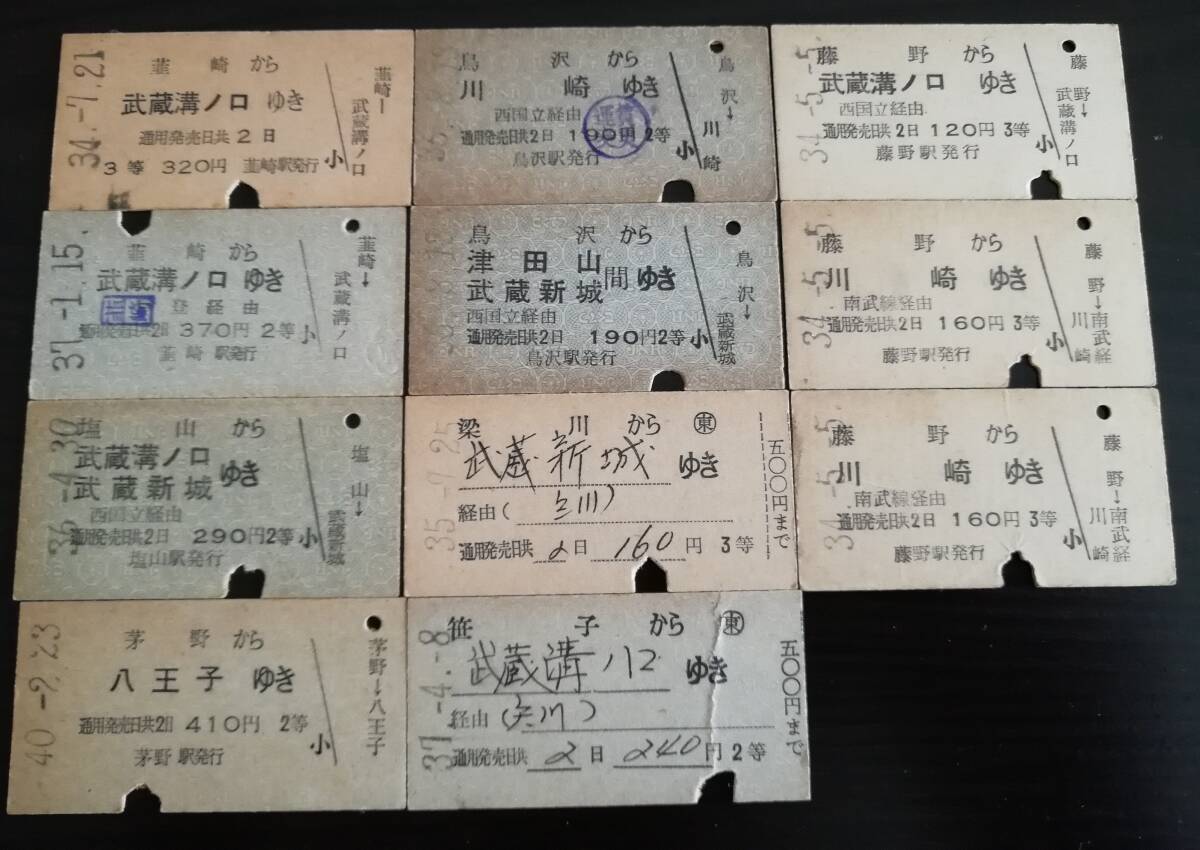 34.-7.21
韮崎から
武蔵溝ノ口 ゆき
通用発売日共2日
3等 320円 韮崎駅発行
小
韮崎→武蔵溝ノ口
鳥沢から
川崎ゆき
西国立経由
通用発売日共2日 190円 2等
鳥沢駅発行
小
鳥沢→川崎
34-5-5
藤野から
武蔵溝ノロ ゆき
西国立経由
通用発売日共2日 120円 3等
藤野駅発行
小
藤野→武蔵溝ノロ
37-1.15.
韮崎から
武蔵溝ノロ ゆき
登経由
370円 2等
韮崎駅発行
小
韮崎→武蔵溝ノロ
鳥沢から
津田山
武蔵新城 間ゆき
西国立経由
通用発売日共2日 190円2等
鳥沢駅発行
小
鳥沢→武蔵新城
34-5-5
藤野から
川崎ゆき
南武線経由
通用発売日共2日 160円 3等
藤野駅発行
小
藤野→南武経川崎
36-4.30
塩山から
武蔵溝ノロ
武蔵新城 ゆき
西国立経由
通用発売日共2日 290円2等
塩山駅発行
小
塩山→武蔵新城
梁川から 東
武蔵新城 ゆき
経由(立川)
通用発売日共2日 160円 3等
五〇〇円まで
34-5-5
藤野から
川崎ゆき
南武線経由
通用発売日共2日 160円 3等
藤野駅発行
小
藤野→南武経川崎
40-9.23
茅野から
八王子 ゆき
通用発売日共2日 410円 2等
茅野駅発行
小
茅野→八王子
37-4.-8
笹子から 東
武蔵溝ノ口 ゆき
経由(立川)
通用発売日共2日 240円 2等
五〇〇円まで